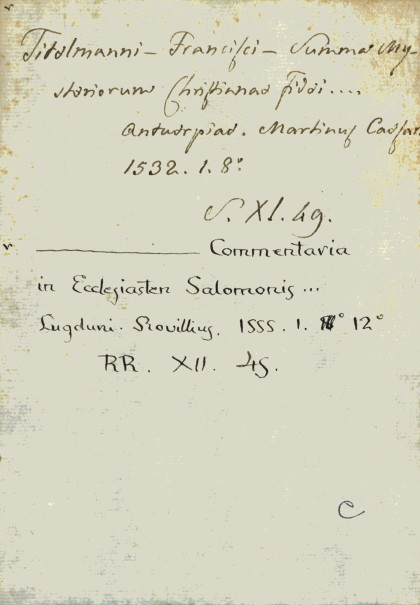 Titelmanni – Francisci – Summa My-
steriorum Christianae fidei....
Antuerpiae. Martinus Caesar.
1532. 1. 8°.
S. XI. 49.
Commentaria
in Ecclesiasten Salomonis...
Lugduni. Rovillius. 1555. 1. 12°
RR. XII. 45.
C